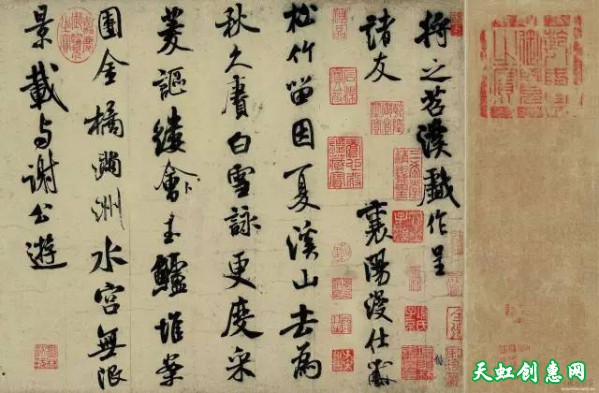 将之苕溪戲作呈
諸友 襄陽漫仕黻
松竹留因夏溪山去為
秋久賡白雪詠更度采
菱謳縷會玉鱸堆案
團金橘滿洲水宮無限
景載与謝公遊
天虹创惠网